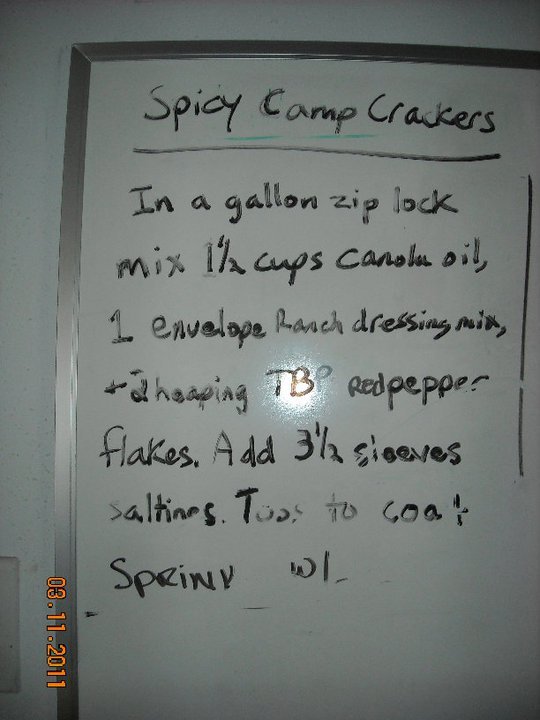 Spicy Camp Crackers
In a gallon zip lock
mix 1½ cups canola oil,
1 envelope Ranch dressing mix,
+ 2 heaping TBP red pepper
flakes. Add 3½ sleeves
saltines. Toss to coat +
SPRINK w/
03.11.2011